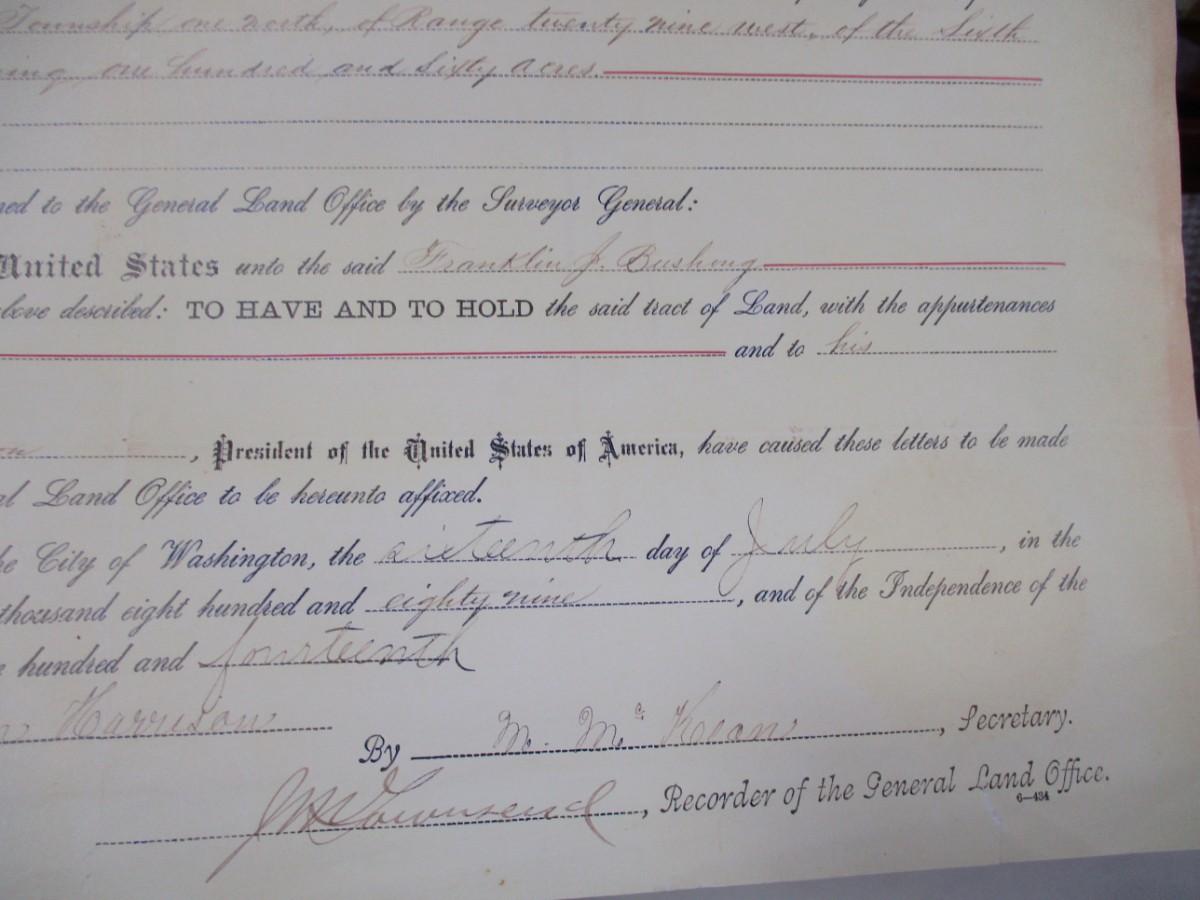 Township one north, of Range twenty nine west, of the Sixth
ing, one hundred and Sixty acres.
ned to the General Land Office by the Surveyor General:
United States unto the said Franklin J. Bushong
bove described: TO HAVE AND TO HOLD the said tract of Land, with the appurtenances
and to his
, President of the United States of America, have caused these letters to be made
al Land Office to be hereunto affixed.
he City of Washington, the sixteenth day of July, in the
thousand eight hundred and eighty nine, and of the Independence of the
e hundred and fourteenth
n Harrison
By M. McKean, Secretary.
Townsend, Recorder of the General Land Office.
6—434